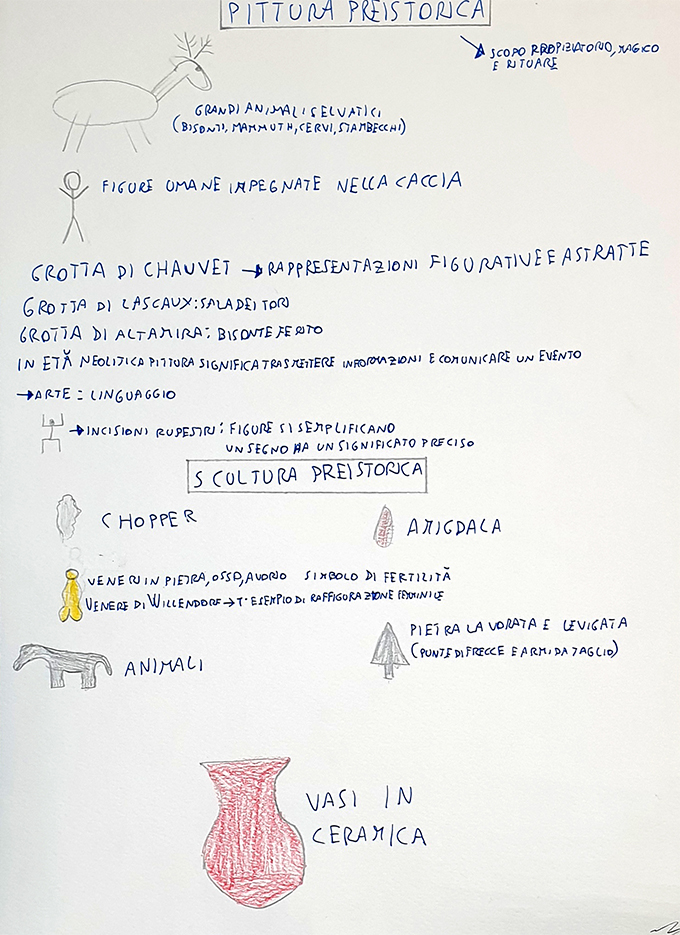 PITTURA PREISTORICA
SCOPO PROPIZIATORIO, MAGICO
E RITUARE
GRANDI ANIMALI SELVATICI
(BISONTI, MAMMUTH, CERVI, STAMBECCHI)
FIGURE UMANE IMPEGNATE NELLA CACCIA
GROTTA DI CHAUVET → RAPPRESENTAZIONI FIGURATIVE E ASTRATTE
GROTTA DI LASCAUX: SALA DEI TORI
GROTTA DI ALTAMIRA: BISONTE FERITO
IN ETÀ NEOLITICA PITTURA SIGNIFICA TRASMETTERE INFORMAZIONI E COMUNICARE UN EVENTO
→ ARTE = LINGUAGGIO
→ INCISIONI RUPESTRI: FIGURE SI SEMPLIFICANO
UN SEGNO HA UN SIGNIFICATO PRECISO
SCULTURA PREISTORICA
CHOPPER
AMIGDALA
VENERI IN PIETRA, OSSO, AVORIO SIMBOLO DI FERTILITÀ
VENERE DI WILLENDORF → 1° ESEMPIO DI RAFFIGURAZIONE FEMMINILE
PIETRA LAVORATA E LEVIGATA
(PUNTE DI FRECCE E ARMI DA TAGLIO)
ANIMALI
VASI IN
CERAMICA